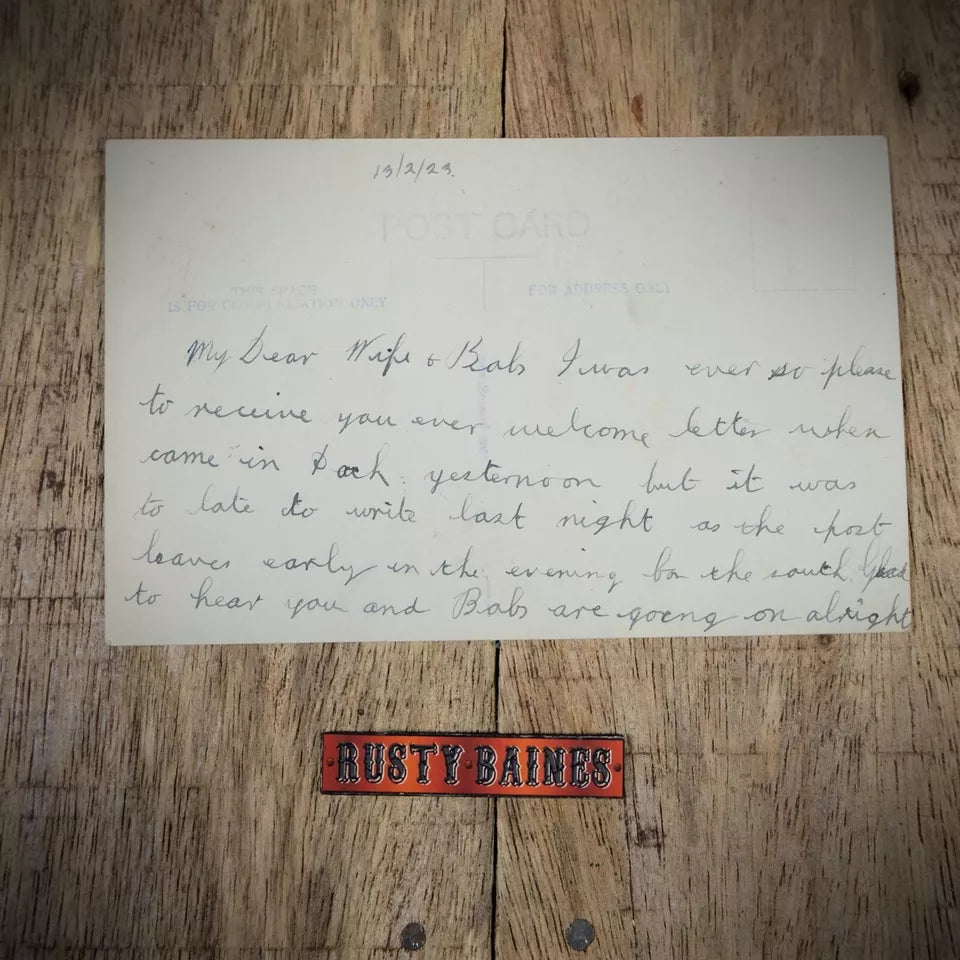 13/2/23.
POST CARD
THIS SPACE
IS FOR COMMUNICATION ONLY
FOR ADDRESS ONLY
My Dear Wife & Babs I was ever so please
to receive you ever welcome letter when
came in Dock yesternoon but it was
to late to write last night as the post
leaves early in the evening for the south. Glad
to hear you and Babs are going on alright
RUSTY·BAINES